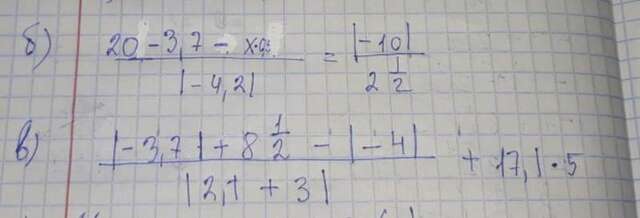 б) (20 - 3,7 - x·a) / |-4,2| = |-10| / 2 1/2
в) (|-3,7| + 8 1/2 - |-4|) / |2,1 + 3| + 17,1·5